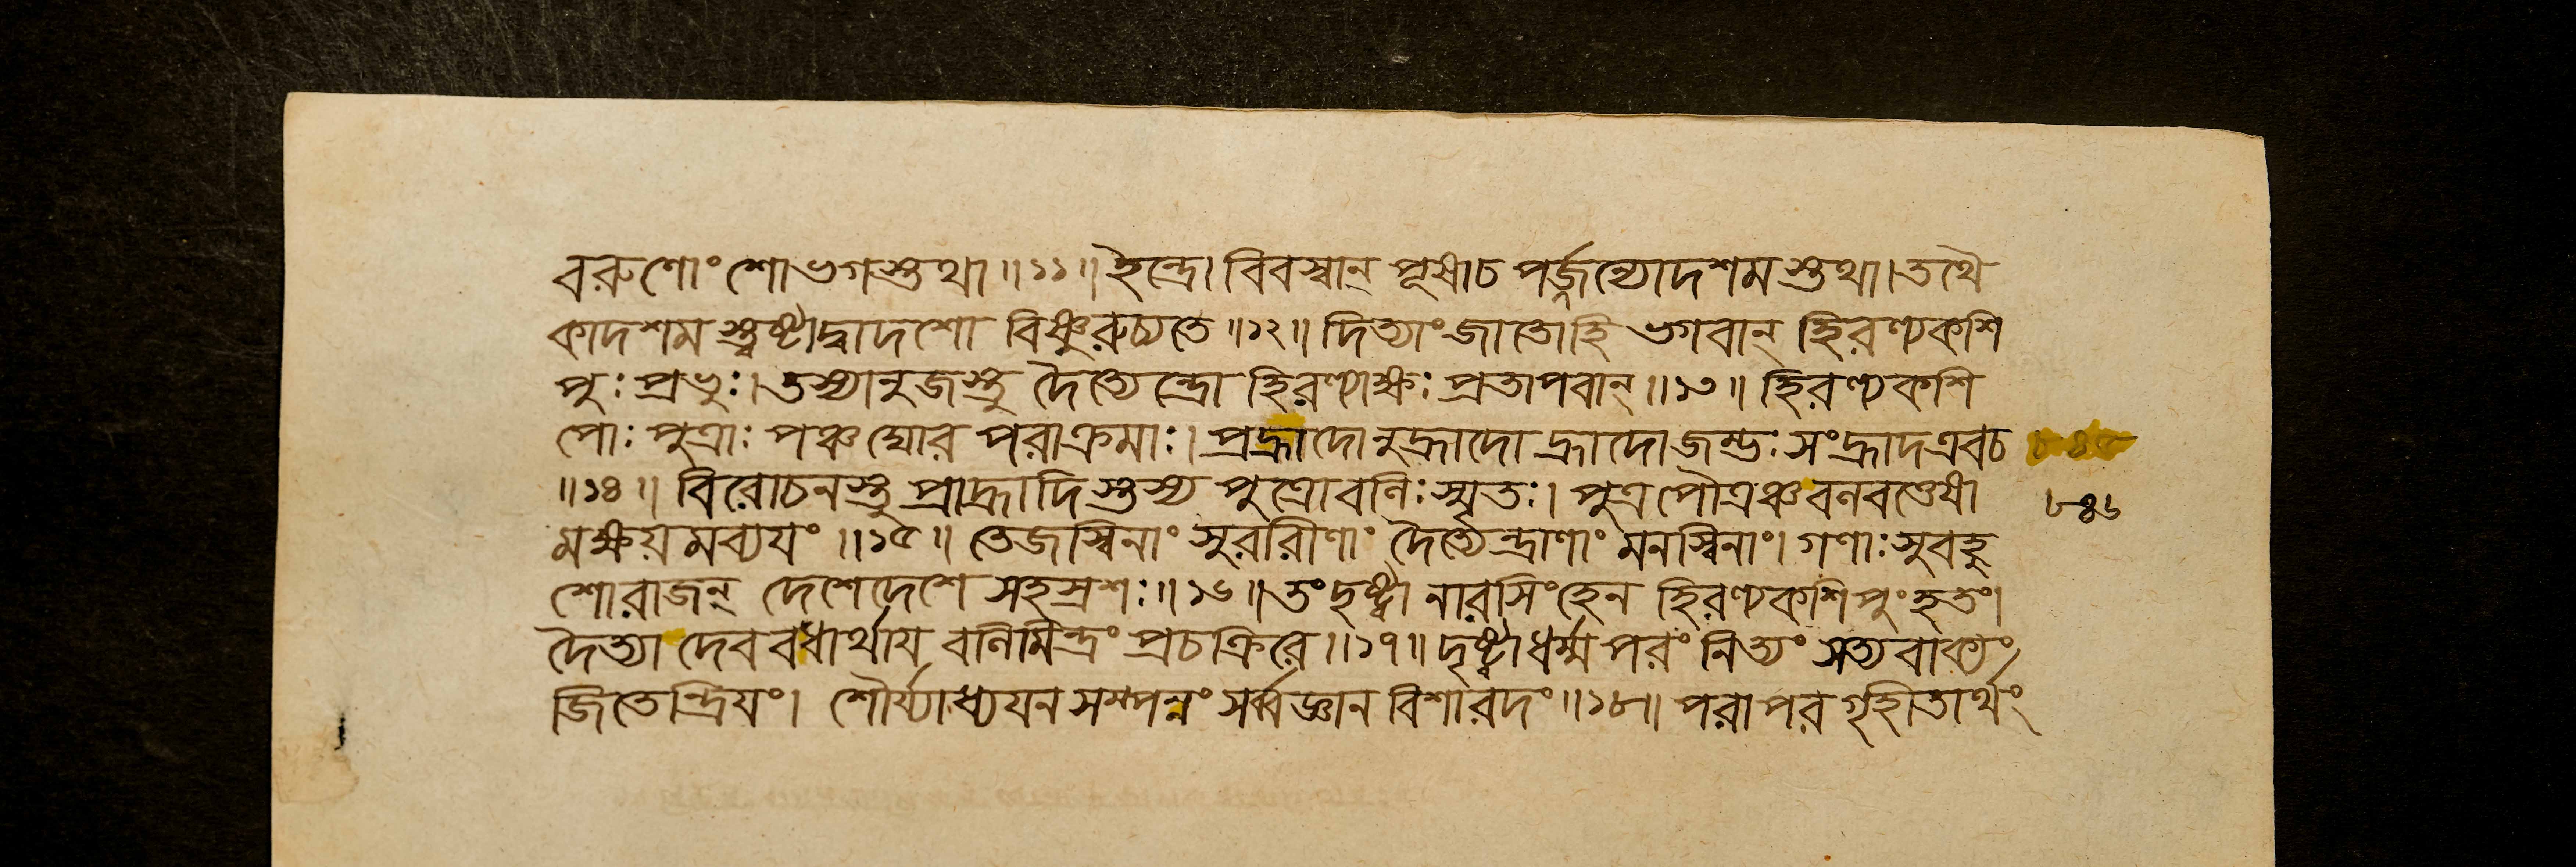 বরুণোংশোভগস্তথা॥১১॥ইন্দ্রো বিবস্বান্ পূষাচ পর্জ্জন্যোদশমস্তথা।তথৈ
কাদশমস্ত্বষ্টাদ্বাদশো বিষ্ণুরুচ্যতে॥১২॥দিত্যাংজাতোহি ভগবান্ হিরণ্যকশি
পুঃ প্রভুঃ।তস্যানুজস্তু দৈত্যেন্দ্রো হিরণ্যাক্ষঃ প্রতাপবান্॥১৩॥ হিরণ্যকশি
পোঃ পুত্রাঃ পঞ্চঘোর পরাক্রমাঃ। প্রহ্রাদোনুহ্রাদো হ্রাদোজম্ভঃ সংহ্রাদএবচ
॥১৪॥ বিরোচনস্তু প্রাহ্রাদিস্তস্য পুত্রোবলিঃস্মৃতঃ। পুত্রপৌত্রঞ্চবলবত্তেষা
৮৪৬
মক্ষয়মব্যয়ং॥১৫॥ তেজস্বিনাং সুররীণাং দৈত্যেন্দ্রাণাং মনস্বিনাং। গণাঃসুবহু
শোরাজন্ দেশেদেশে সহস্রশঃ॥১৬॥তংদৃষ্ট্বা নারসিংহেন হিরণ্যকশিপুংহতং।
দৈত্যা দেববধার্থায় বলিমিন্দ্রং প্রচক্রিরে॥১৭॥দৃষ্ট্বাধর্ম্মপরং নিত্যং সত্যবাক্যং
জিতেন্দ্রিয়ং। শৌর্য্যাধ্যয়নসম্পন্নং সর্ব্বজ্ঞান বিশারদং॥১৮॥ পরাপর গৃহীতার্থং